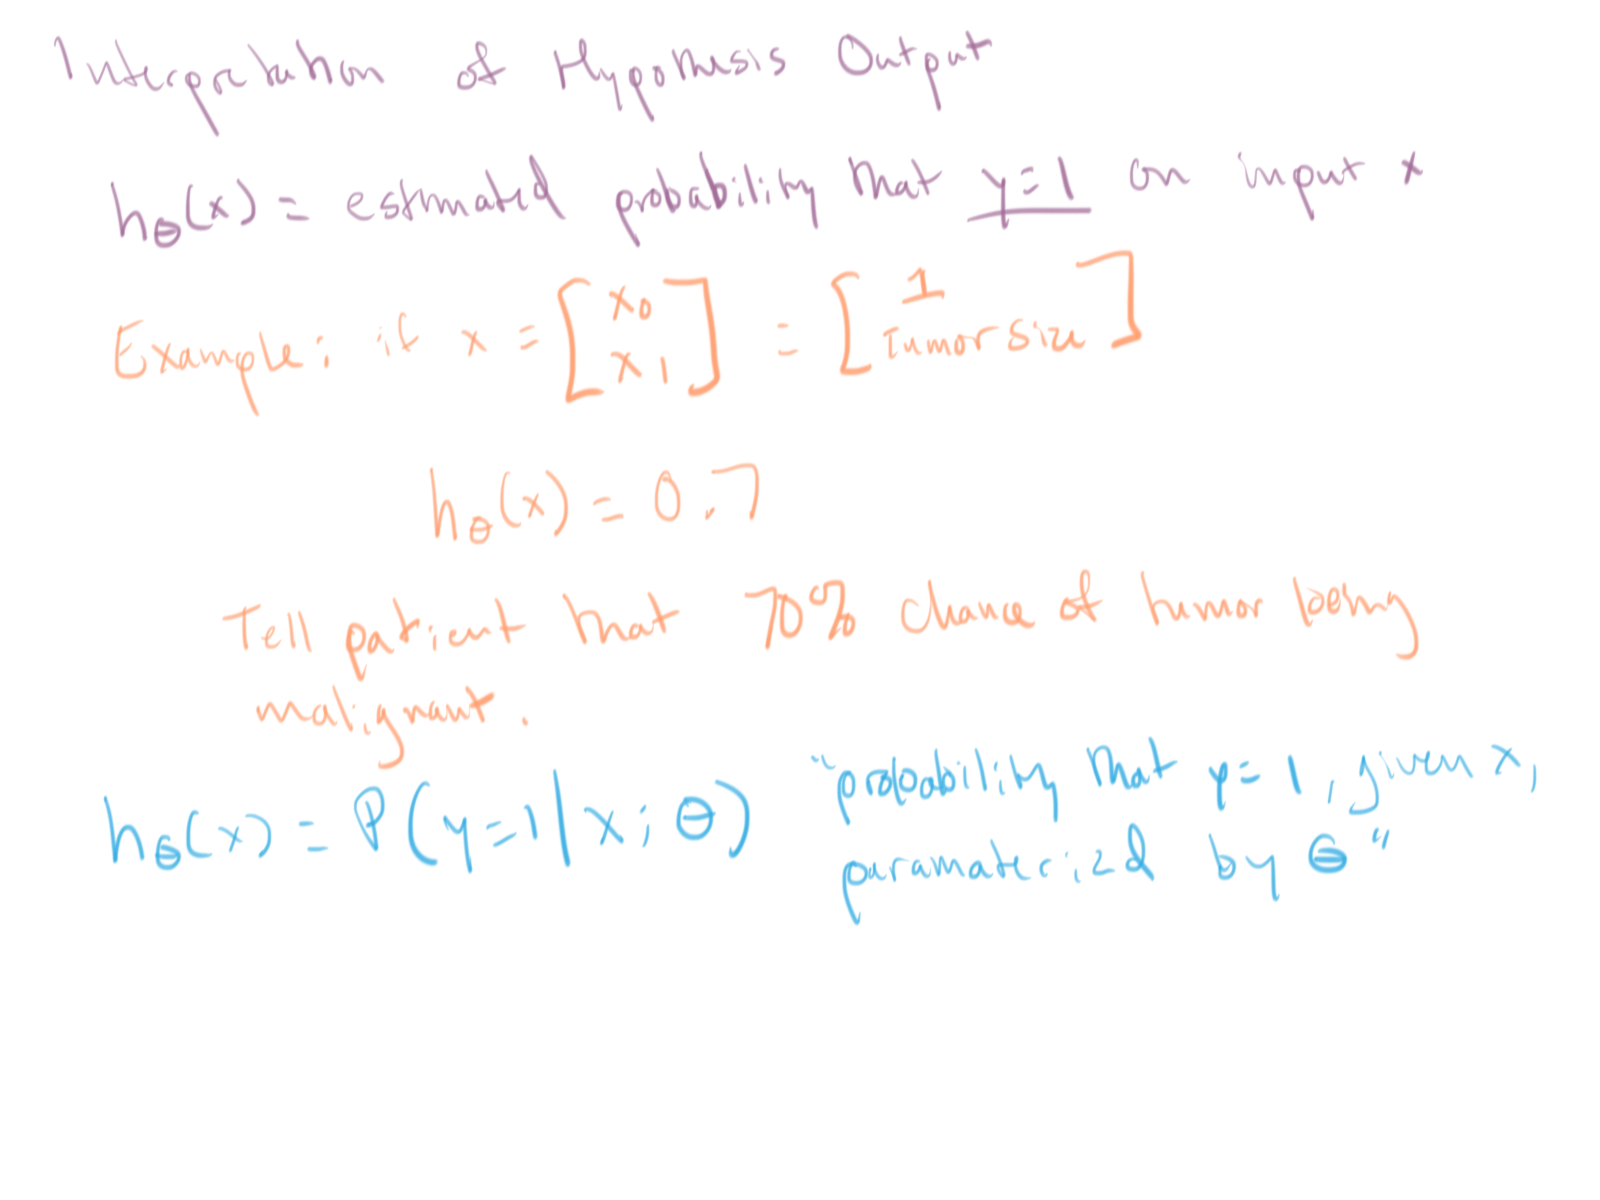 Interpretation of Hypothesis Output
hθ(x) = estimated probability that y=1 on input x
Example: if x = [x0 x1] = [1 Tumor size]
hθ(x) = 0.7
Tell patient that 70% chance of tumor being
malignant.
hθ(x) = P(y=1|x; θ) "probability that y=1, given x,
paramaterized by θ"